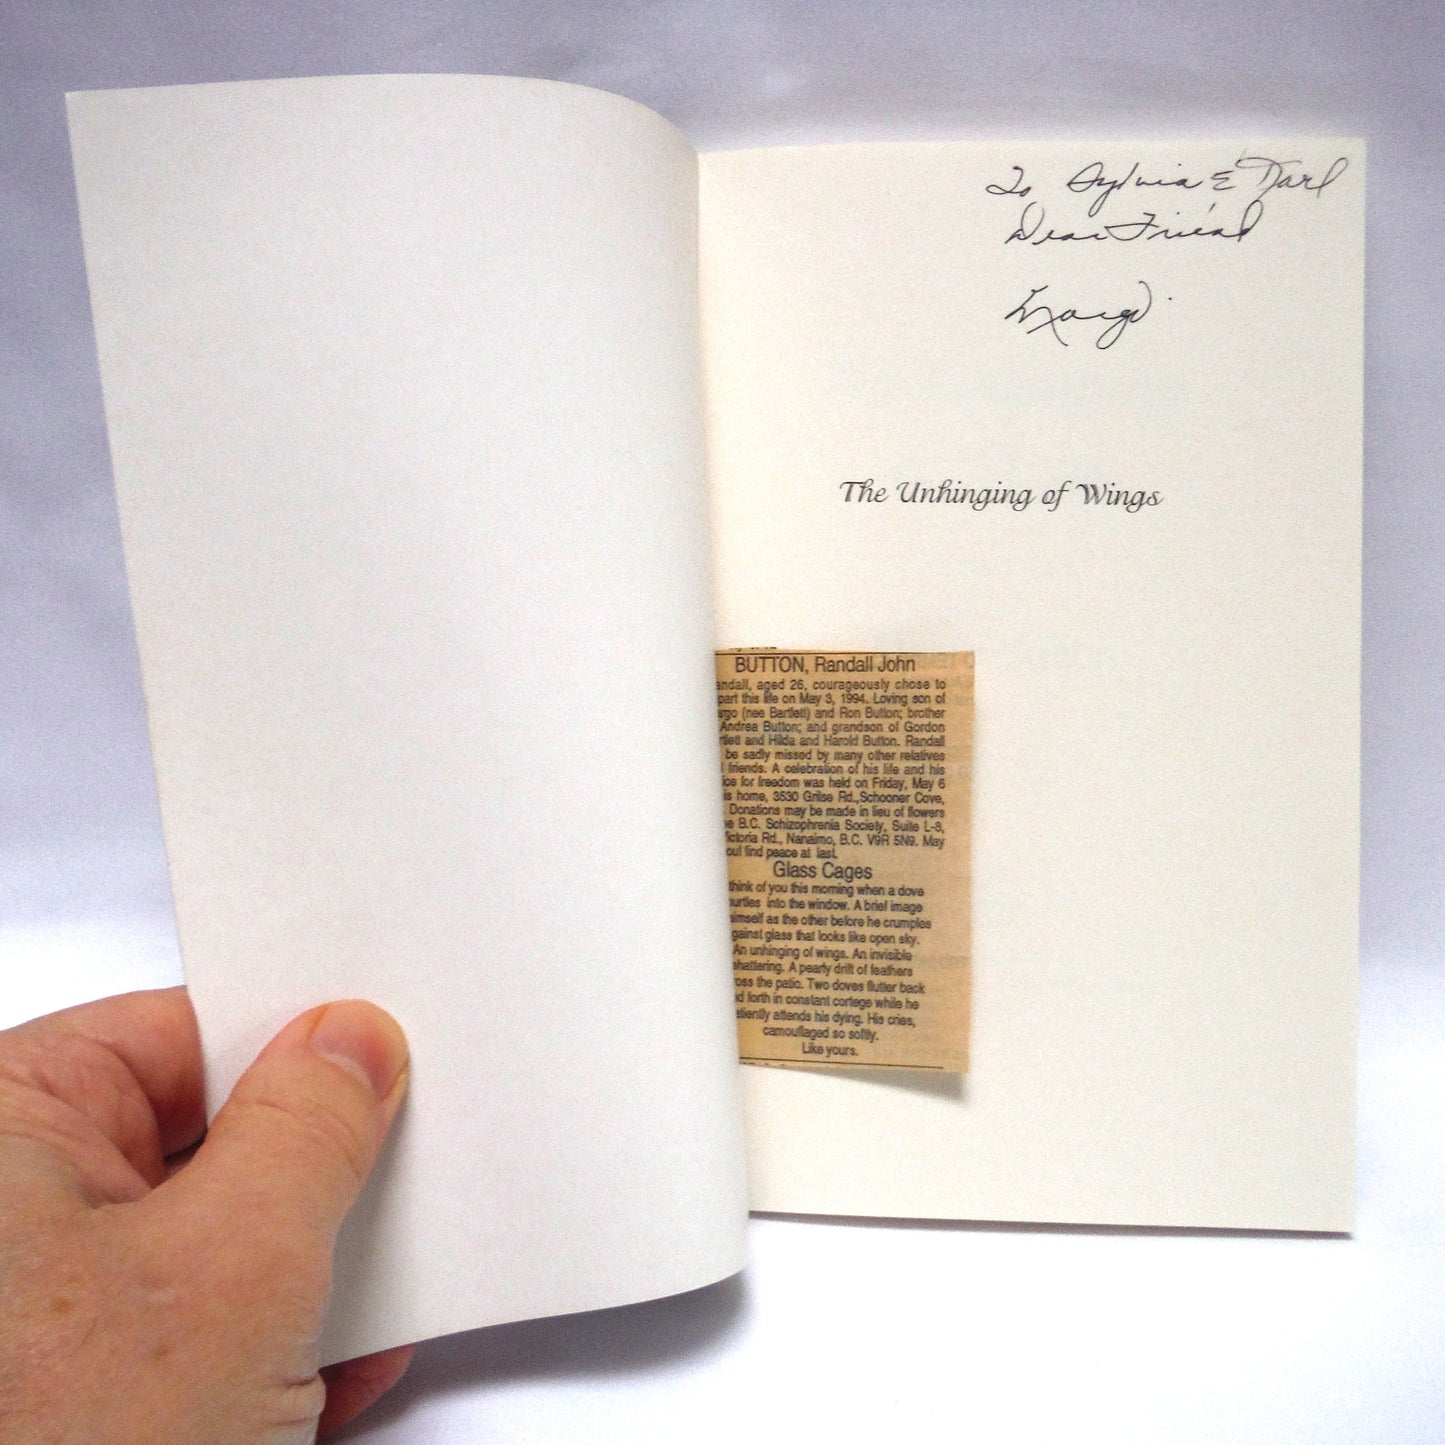 To Sylvia & Darl
Dear Friend
Margo
The Unhinging of Wings
BUTTON, Randall John
andall, aged 26, courageously chose to
part this life on May 3, 1994. Loving son of
rgo (nee Bartlett) and Ron Button; brother
Andrea Button; and grandson of Gordon
rtlett and Hilda and Harold Button. Randall
be sadly missed by many other relatives
friends. A celebration of his life and his
ice for freedom was held on Friday, May 6
is home, 3530 Grilse Rd.,Schooner Cove,
Donations may be made in lieu of flowers
e B.C. Schizophrenia Society, Suite L-8,
ictoria Rd., Nanaimo, B.C. V9R 5N9. May
oul find peace at last.
Glass Cages
think of you this morning when a dove
hurtles into the window. A brief image
himself as the other before he crumples
gainst glass that looks like open sky.
An unhinging of wings. An invisible
shattering. A pearly drift of feathers
ross the patio. Two doves flutter back
nd forth in constant cortege while he
atiently attends his dying. His cries,
camouflaged so softly.
Like yours.